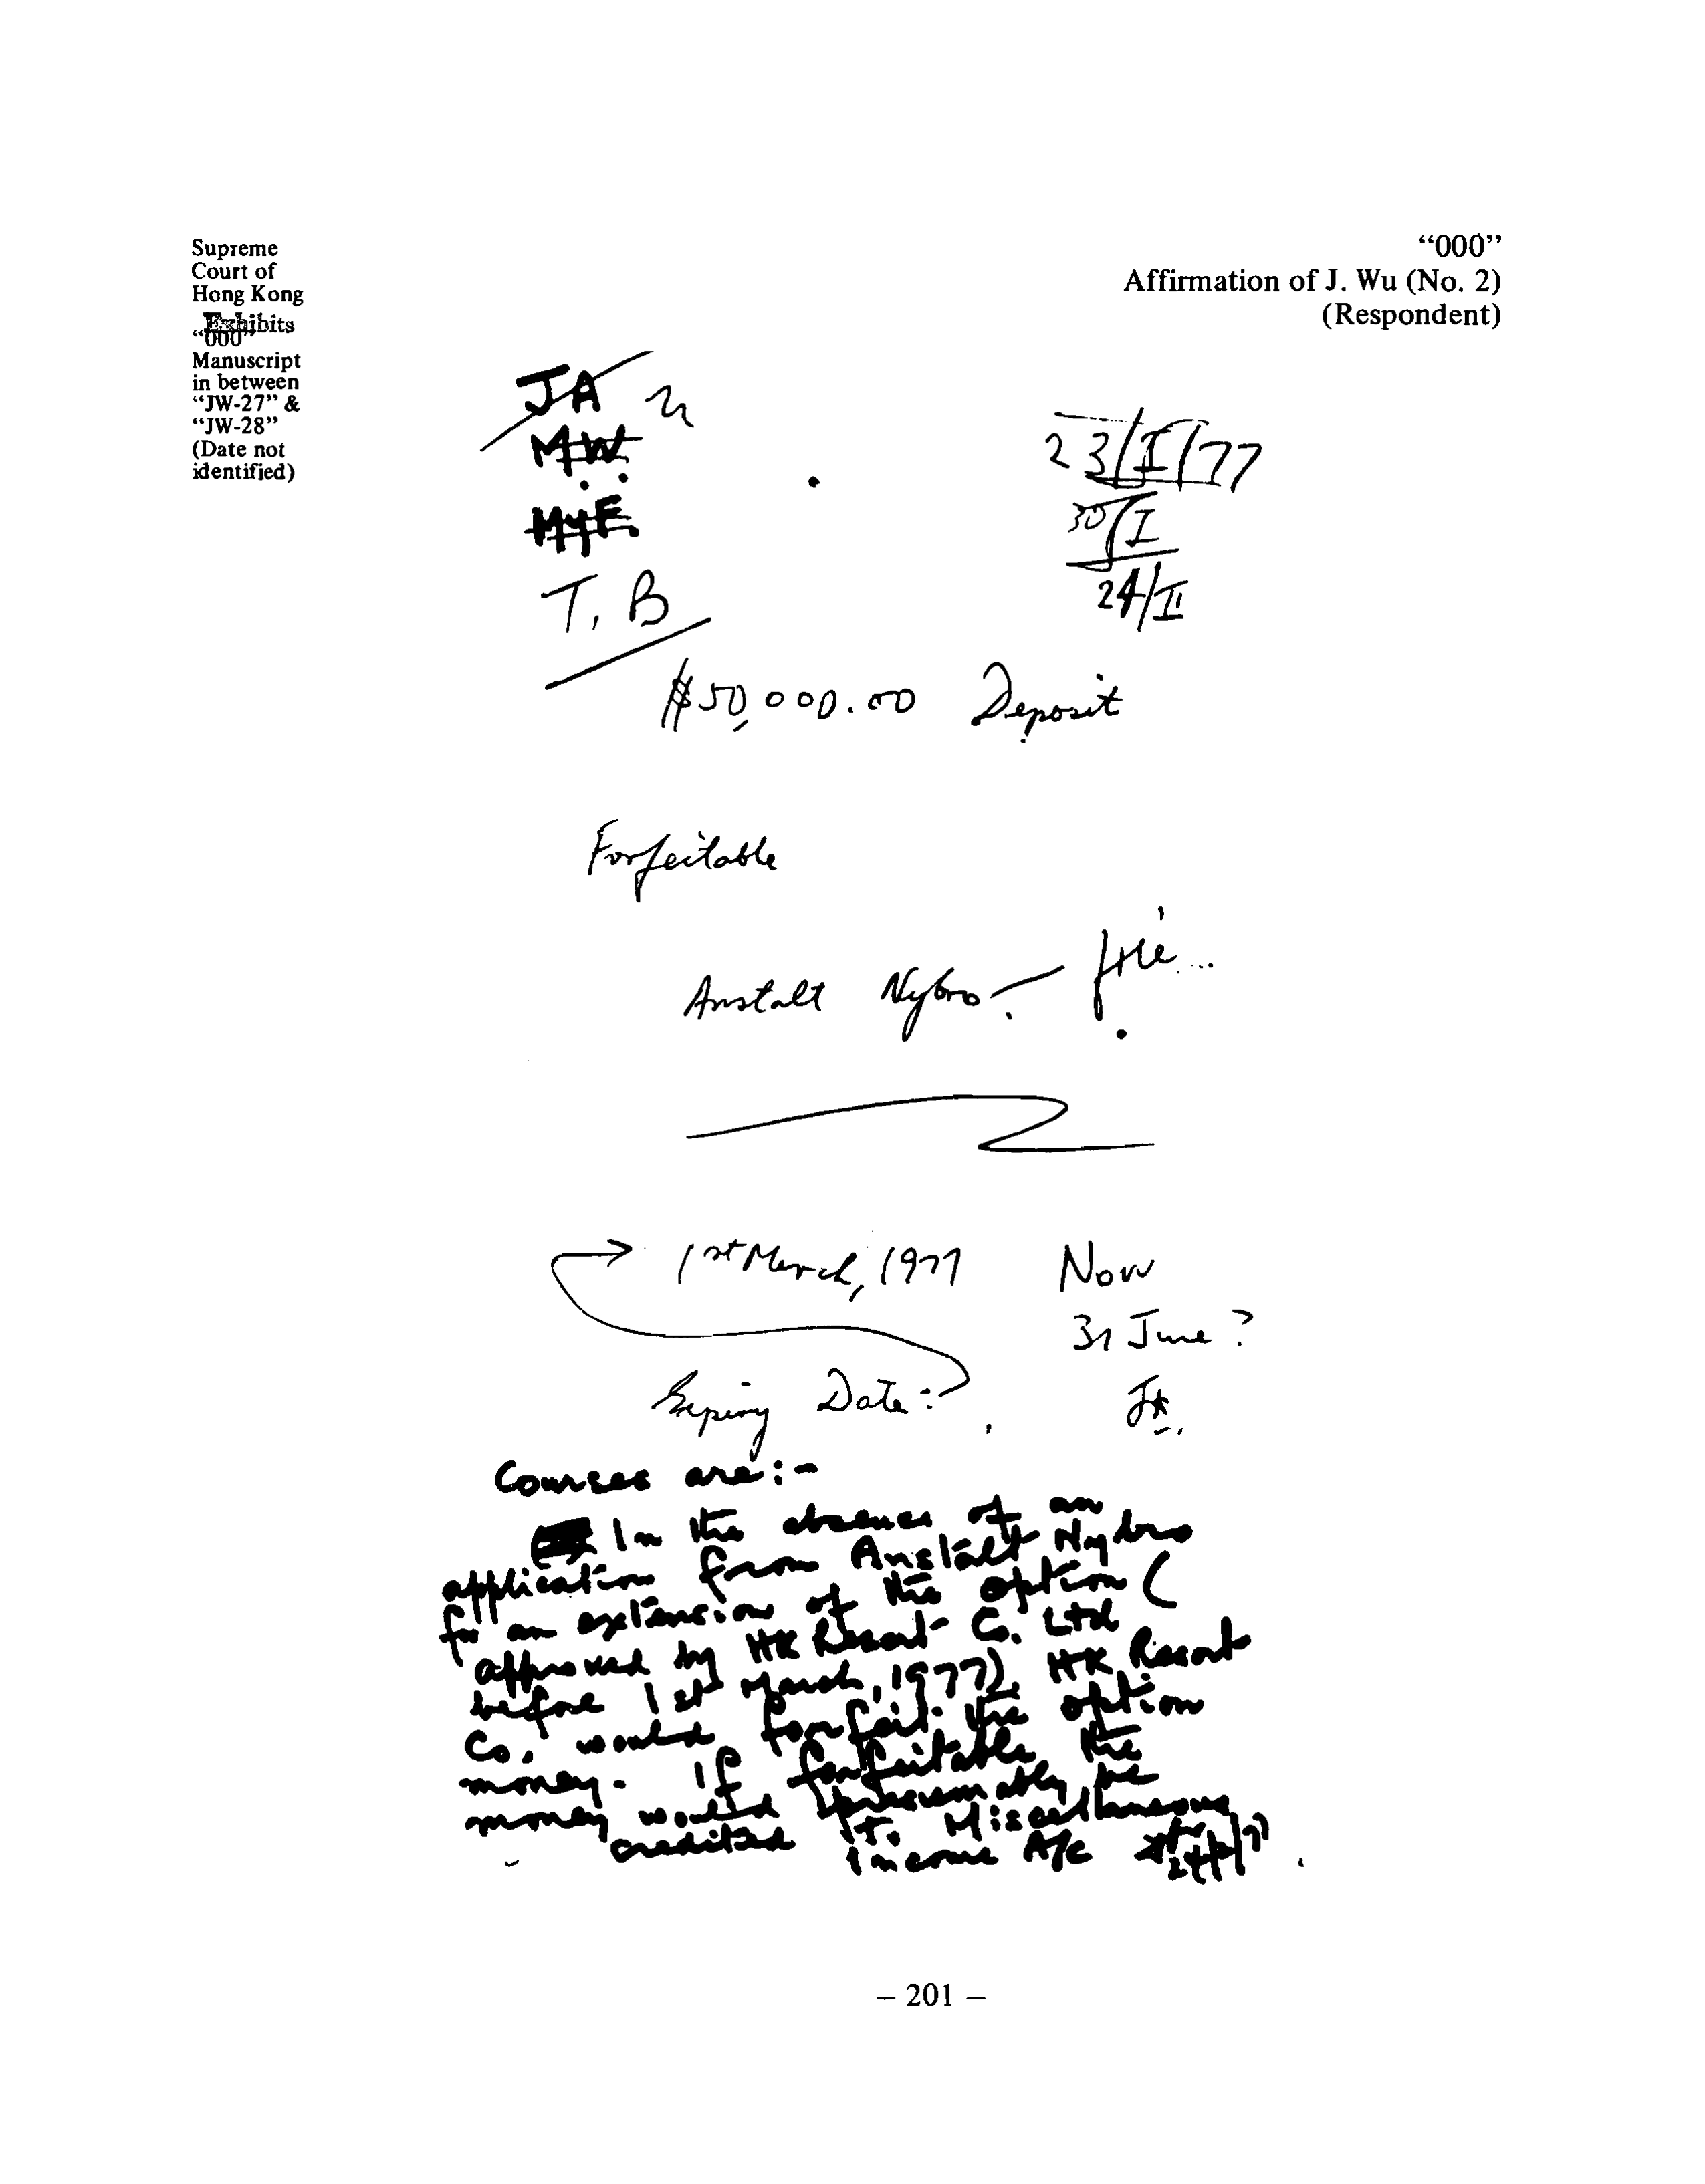 Supreme
Court of
Hong Kong
Exhibits
“000”
Manuscript
in between
“JW-27” &
“JW-28”
(Date not
identified)
“000”
Affirmation of J. Wu (No. 2)
(Respondent)
JA
M.W.
MyE.
T.B
23/I/77
30/I
24/II
$50,000.00 Deposit
Forfeitable
Anstalt Nybro — file...
1st March, 1977 Now
31 June?
Expiry Date:
JA.
Courses are:-
In the absence of an
application from Anstalt Nybro
for an extension of the option (
approved by HK Resort Co. Ltd
before 1st March, 1977), HK Resort
Co. would forfeit the option
money. If forfeitable, the
money would presumably be
credited to Miscellaneous
Income A/c